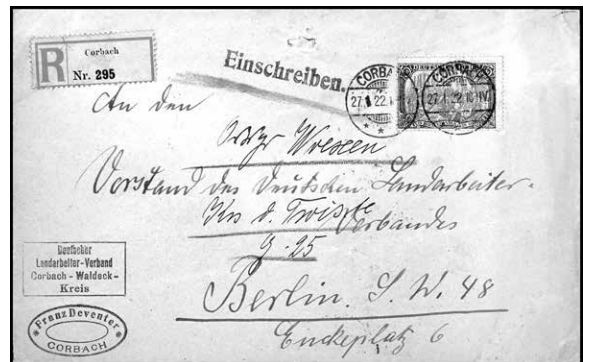 Corbach
R
Nr. 295
Einschreiben.
CORBACH
27.1.22.
CORBACH
27.1.22.
An den
Vorstand des Deutschen Landarbeiter-
Verbandes
Berlin. S. W. 48
Enckeplatz 6
Deutscher
Landarbeiter-Verband
Corbach - Waldeck -
Kreis
Franz Deventer
CORBACH